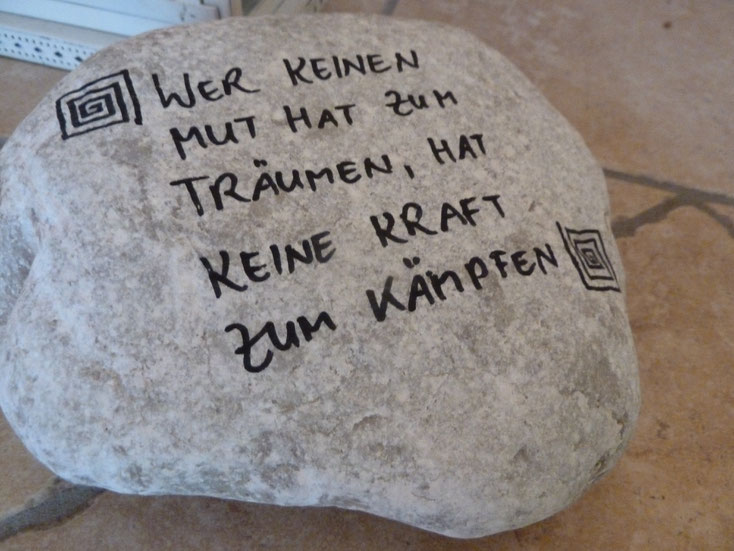 WER KEINEN
MUT HAT ZUM
TRÄUMEN, HAT
KEINE KRAFT
ZUM KÄMPFEN